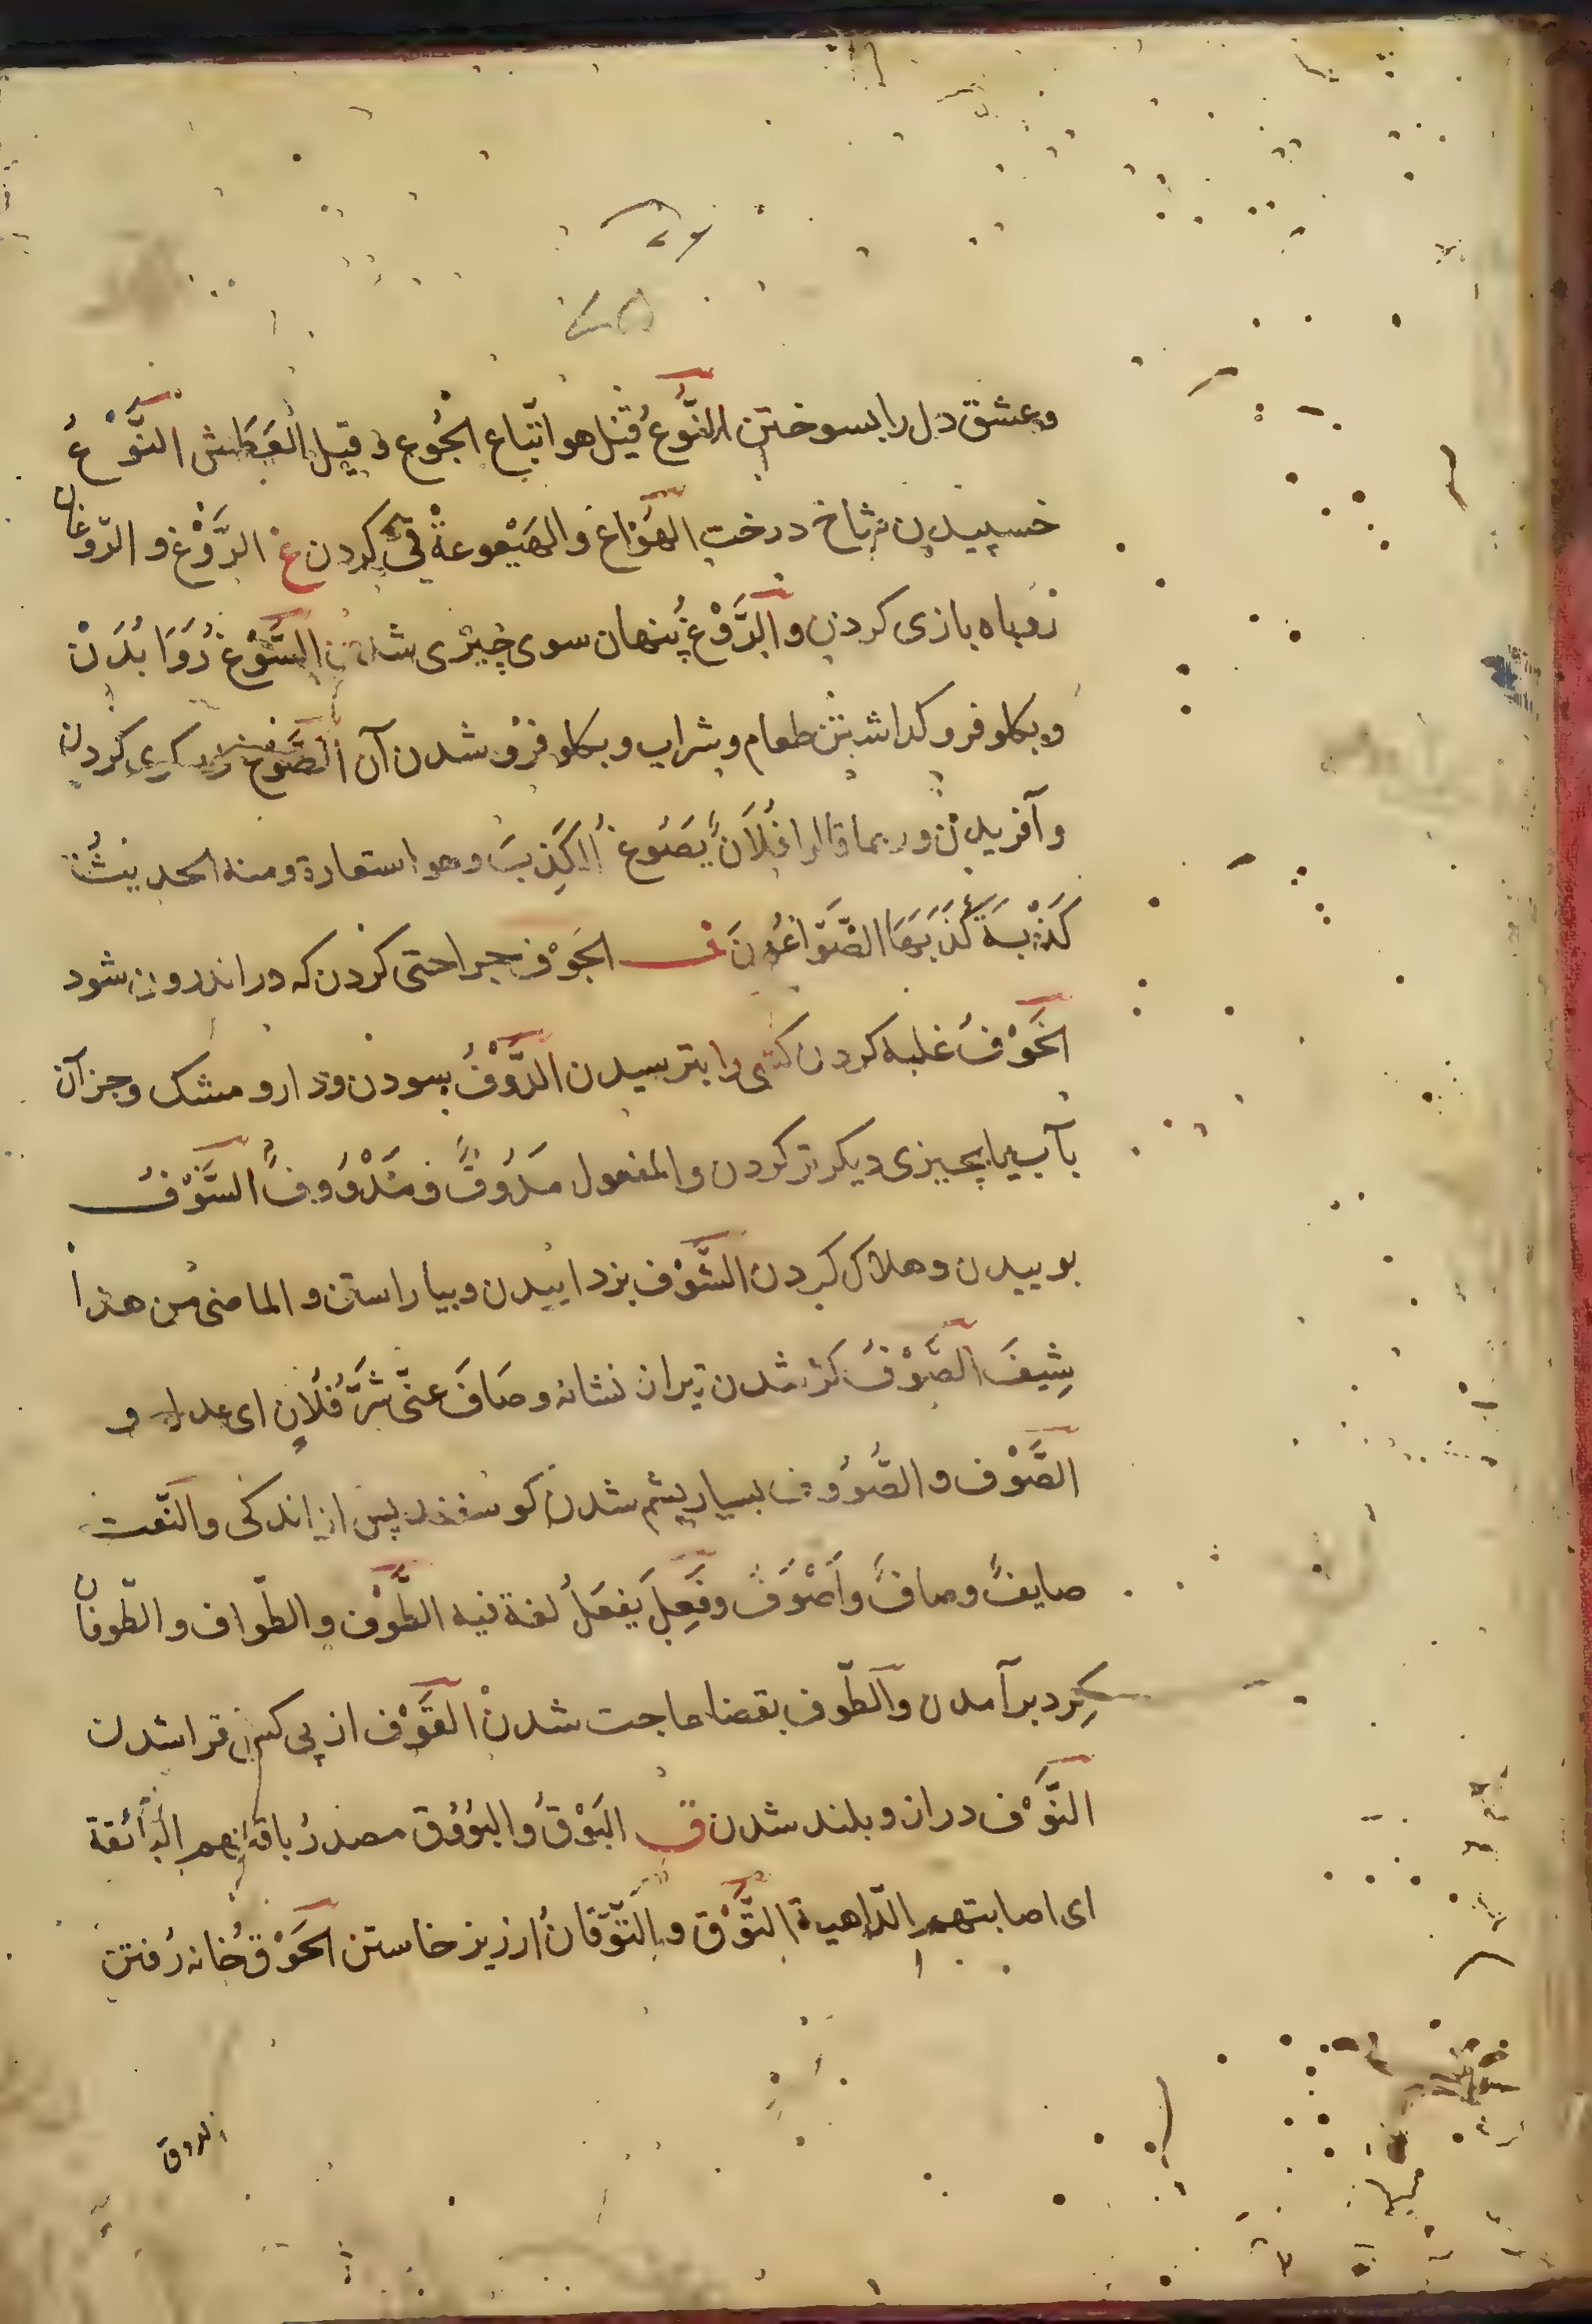 وعشق دل را بسوختن النُّوعُ قیل هو اتّباع الجُوع و قیل العَطش النَّوْعُ
خسپیدن شاخ درخت الهَوَاعُ والهَیْعوعةُ قیْ کردن غ الرَّوْغ و الرّوغان
روباه بازی کردن و الرَّوْغ پُنهان سوی چیزی شدن السَّوْغ رُوَا بُدَنْ
و بکلو فرو کداشتن طعام و شراب و بکلو فرو شدن آن الصَّوغ زرکری کردن
و آفریدن و ربما قالوا فُلَانٌ یَصُوغ الکَذِبَ وهو استعارة ومنه الحدیث
کَذْبَةٌ کَذَبَهَا الصَّوّاغُونَ ف الجَوْف جراحتی کردن که در اندرون شود
الخَوْفُ غلبه کردن کسی را بترسیدن الدَّوْفُ بسودن دارو و مشک و جز آن
بآب یا بچیزی دیکر تر کردن والمفعول مَدُوفٌ و مَدْوُوفٌ السَّوْفُ
بوییدن و هلاک کردن الشَّوْف بزداییدن و بیاراستن و الماضی من هذا
شِیفَ الصَّوْفُ کژ شدن تیر از نشانه و صَافَ عنّی شَرَّ فُلَانٍ ای عدل و
الصَّوْف و الصُّوُوف بسیار پشم شدن کوسفند پس از اندکی والنّعت
صایفٌ وصافٌ وأَصْوَفُ وفَعِلَ یَفعَلُ لغة فیه الطَّوْف والطّواف والطّوفان
کِرد برآمدن والطّوف بقضا حاجت شدن القَوْف از پی کسی فرا شدن
النَّوْف دراز و بلند شدن ق البَوْقُ والبُوُوق مصدرُ باقتهم البَائقة
ای اصابتهم الدّاهیة التَّوْق و التَّوَقَانُ ارزیز خاستن الحَوْقُ خانه رُفتن
الروق